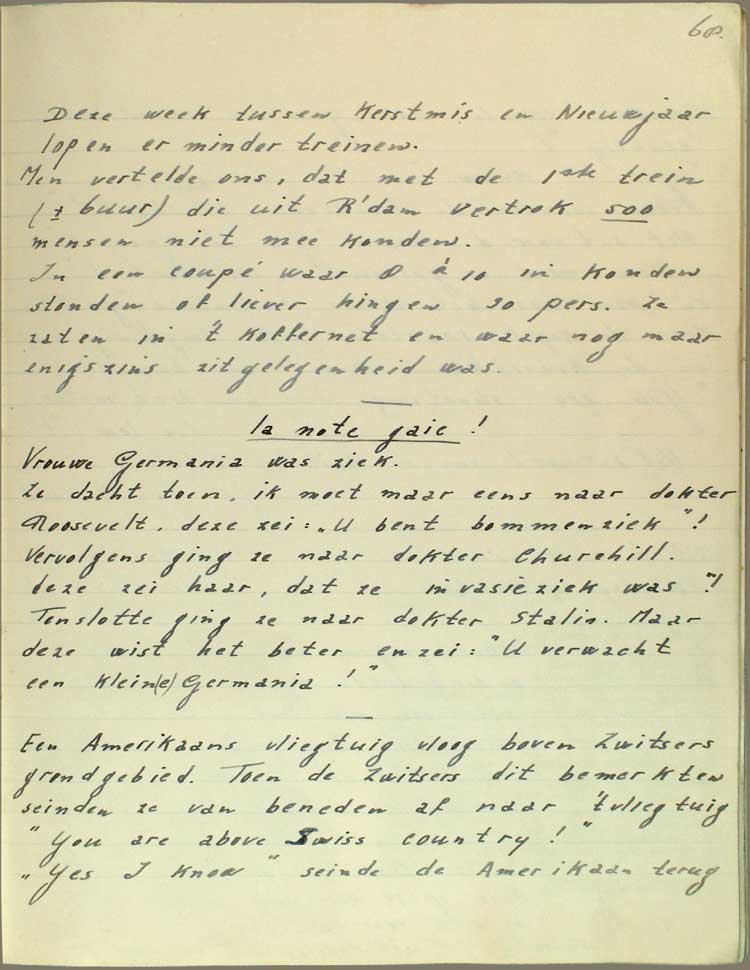 68.
Deze week tussen Kerstmis en Nieuwjaar
lopen er minder treinen.
Men vertelde ons, dat met de 1ste trein
(± 6 uur) die uit R'dam vertrok 500
mensen niet mee konden.
In een coupé waar 8 à 10 in konden
stonden of liever hingen 30 pers. Ze
zaten in 't koffernet en waar nog maar
enigszins zitgelegenheid was.
la note gaie!
Vrouwe Germania was ziek.
Ze dacht toen, ik moet maar eens naar dokter
Roosevelt, deze zei: „U bent bommenziek"!
Vervolgens ging ze naar dokter Churchill.
deze zei haar, dat ze invasieziek was"!
Tenslotte ging ze naar dokter Stalin. Maar
deze wist het beter en zei: "U verwacht
een klein(e) Germania!"
Een Amerikaans vliegtuig vloog boven Zwitsers
grondgebied. Toen de Zwitsers dit bemerkten
seinden ze van beneden af naar 't vliegtuig
"You are above Swiss country!"
„Yes I know" seinde de Amerikaan terug